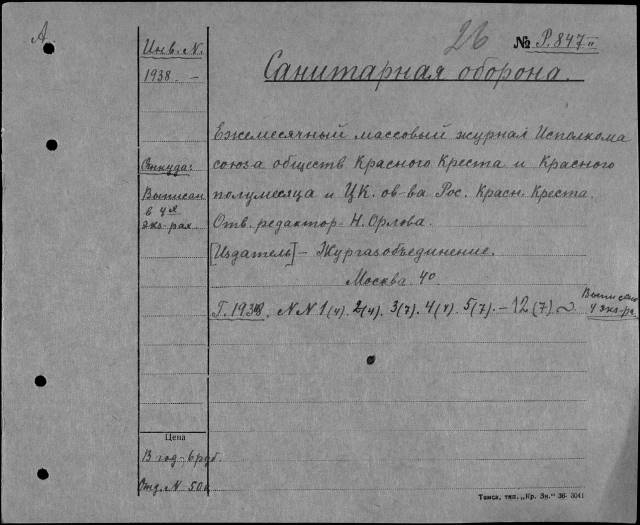 А.
26
№ Р.847 II
Инв. N.
1938 –
Санитарная оборона.
Ежемесячный массовый журнал Исполкома
союза обществ Красного Креста и Красного
полумесяца и ЦК. ов-ва Рос. Красн. Креста.
Отв. редактор Н. Орлова.
[Издатель] – Жургазобъединение.
Москва. 4°
Откуда:
Выписан
в 4х
экз-рах.
Г. 1938, NN 1(4). 2(4). 3(7). 4(7). 5(7). – 12(7)
Выписан
4 экз-ра.
Цена
В год – 6 руб.
Отд. N 50к
Томск, тип. „Кр. Зн." 36- 3041